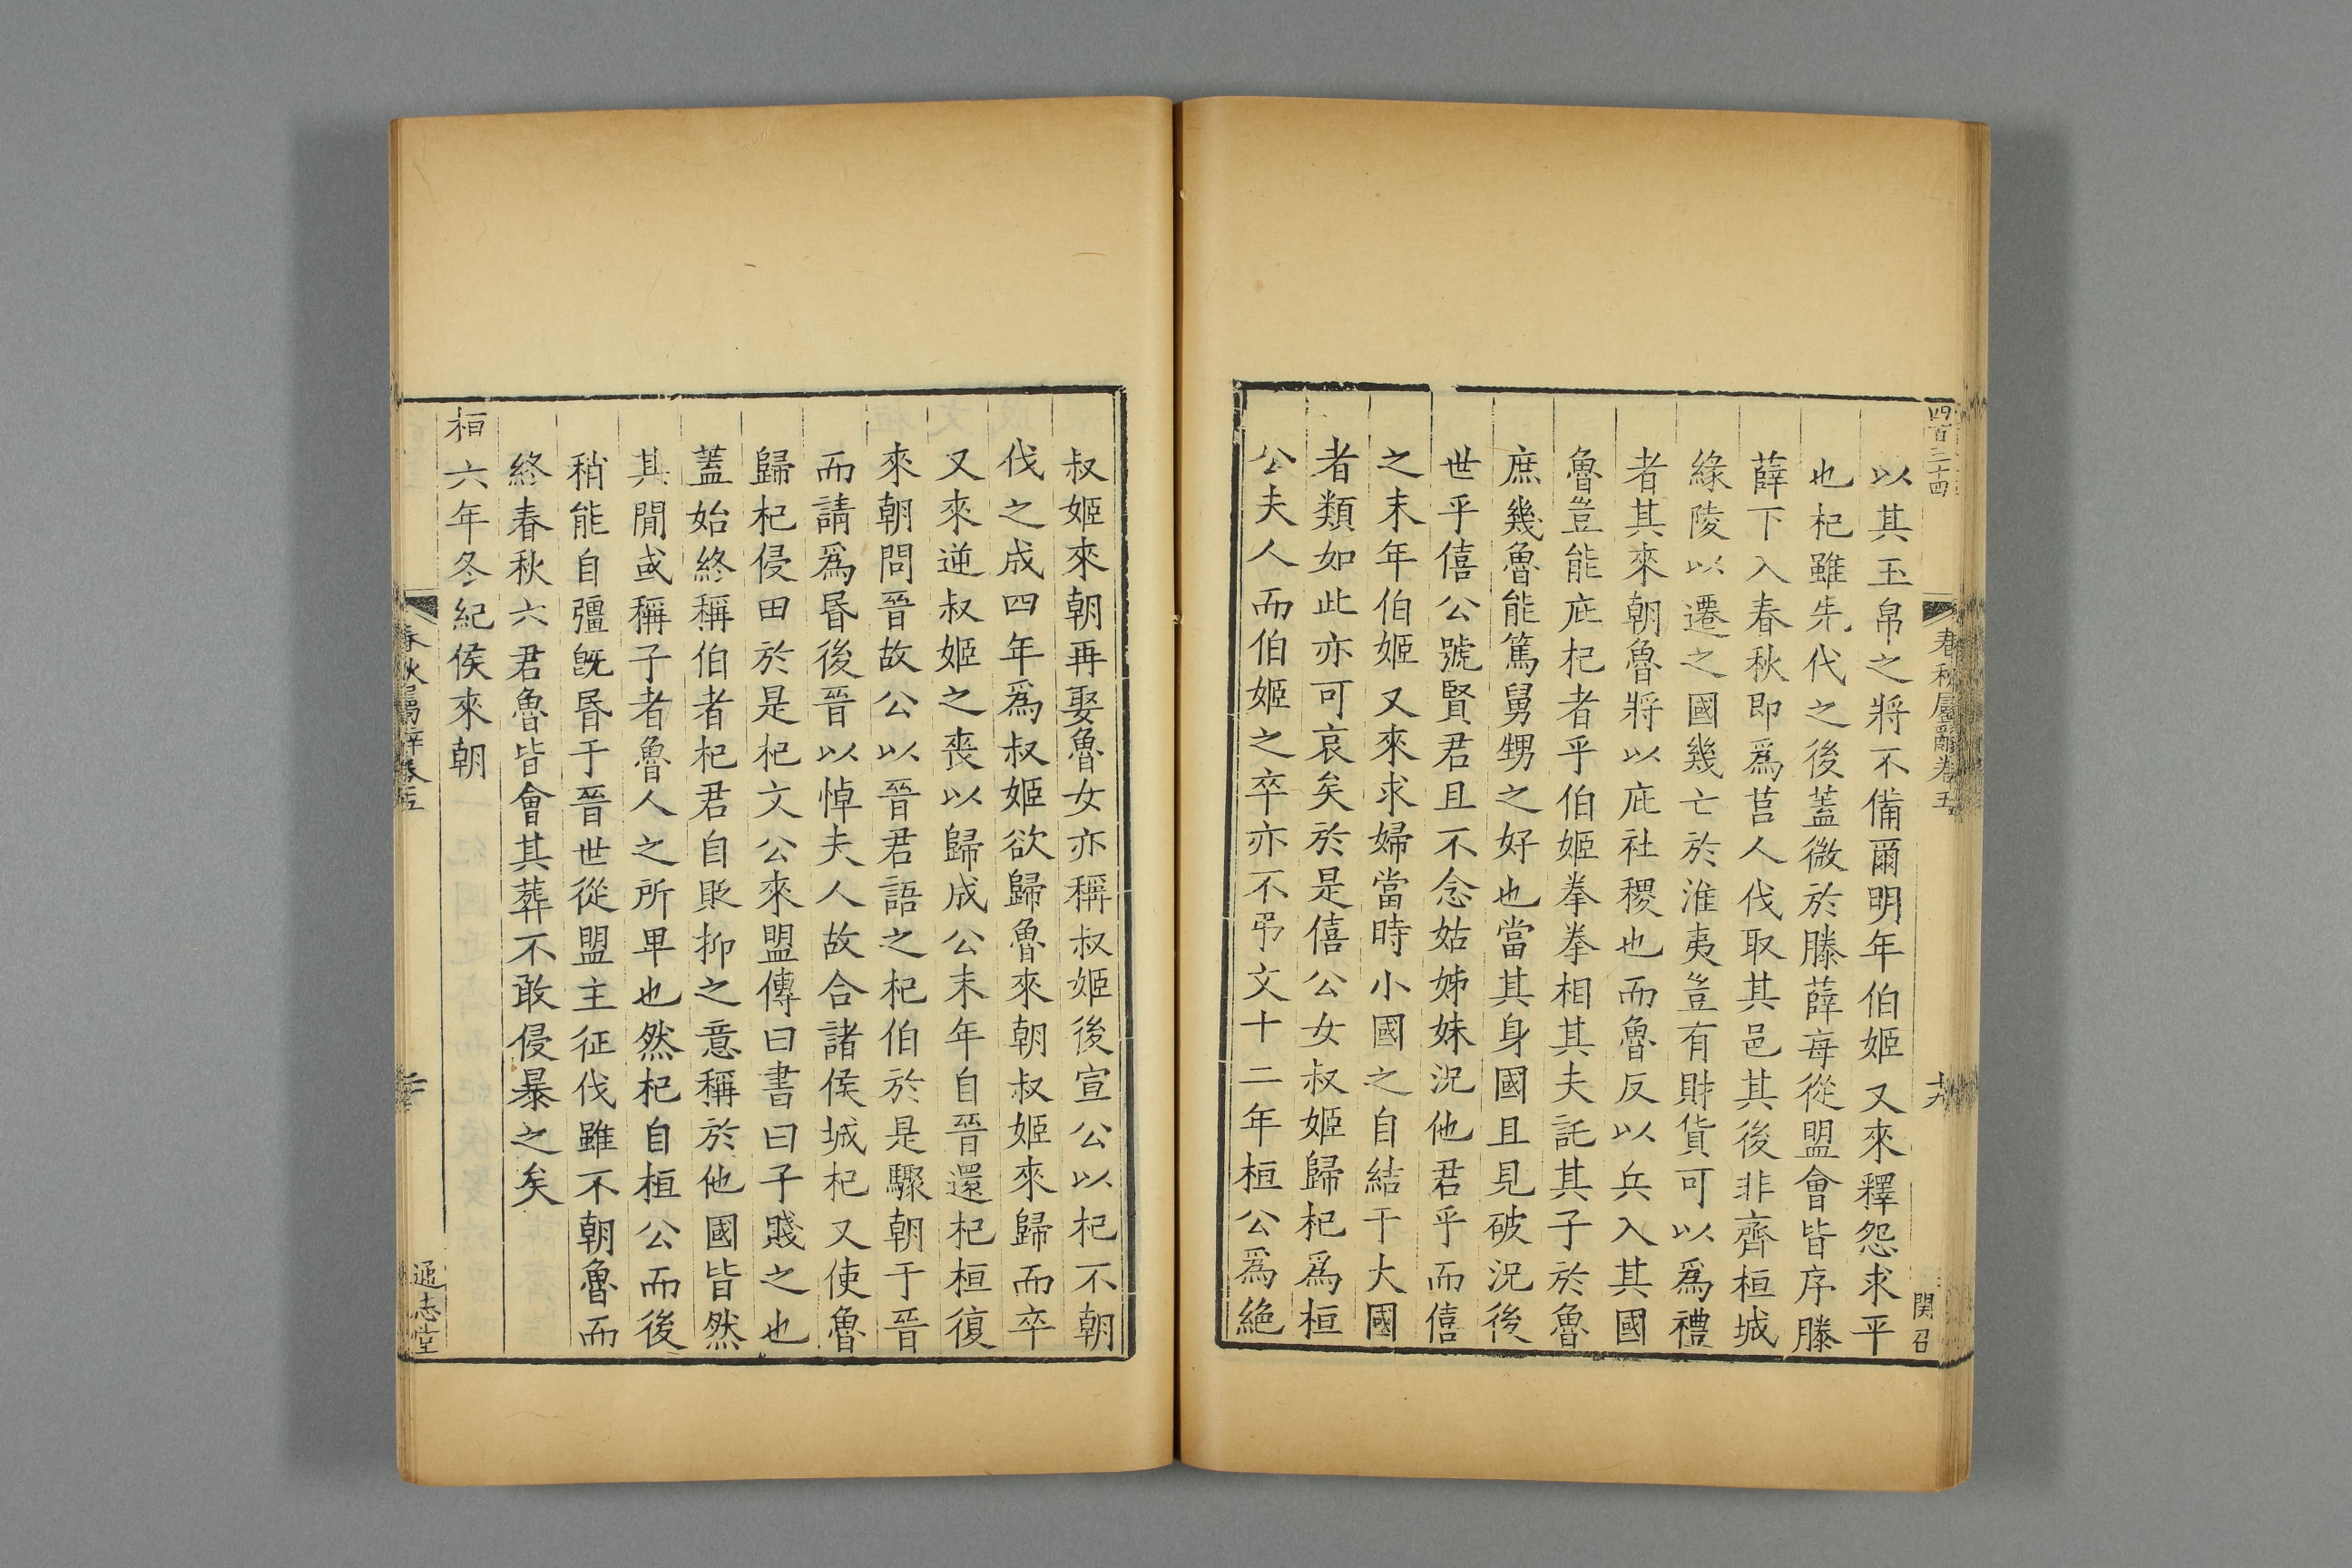 四百三十四
春秋屬辭卷五
十九
関召
以其玉帛之將不備爾明年伯姬又來釋怨求平
也杞雖先代之後蓋微於滕薛每從盟會皆序滕
薛下入春秋即爲莒人伐取其邑其後非齊桓城
緣陵以遷之國幾亡於淮夷豈有財貨可以爲禮
者其來朝魯將以庇社稷也而魯反以兵入其國
魯豈能庇杞者乎伯姬拳拳相其夫託其子於魯
庶幾魯能篤舅甥之好也當其身國且見破況後
世乎僖公號賢君且不念姑姊妹況他君乎而僖
之末年伯姬又來求婦當時小國之自結于大國
者類如此亦可哀矣於是僖公女叔姬歸杞爲桓
公夫人而伯姬之卒亦不弔文十二年桓公爲絶
叔姬來朝再娶魯女亦稱叔姬後宣公以杞不朝
伐之成四年爲叔姬欲歸魯來朝叔姬來歸而卒
又來逆叔姬之喪以歸成公末年自晉還杞桓復
來朝問晉故公以晉君語之杞伯於是驟朝于晉
而請爲昏後晉以悼夫人故合諸侯城杞又使魯
歸杞侵田於是杞文公來盟傳曰書曰子賤之也
蓋始終稱伯者杞君自貶抑之意稱於他國皆然
其閒或稱子者魯人之所卑也然杞自桓公而後
稍能自彊旣昏于晉世從盟主征伐雖不朝魯而
終春秋六君魯皆會其葬不敢侵暴之矣
桓六年冬紀侯來朝
春秋屬辭卷五
通志堂